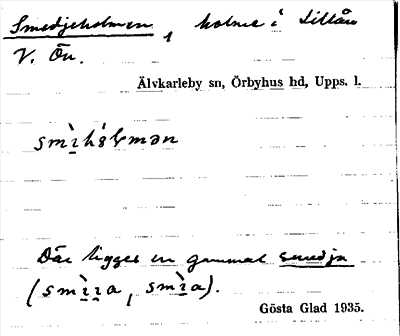 Smedjeholmen, holme i Lillån
V. Ön.
Älvkarleby sn, Örbyhus hd, Upps. l.
smìhålmən
Där ligger en gammal smedja
(smìɪa, smìa).
Gösta Glad 1935.